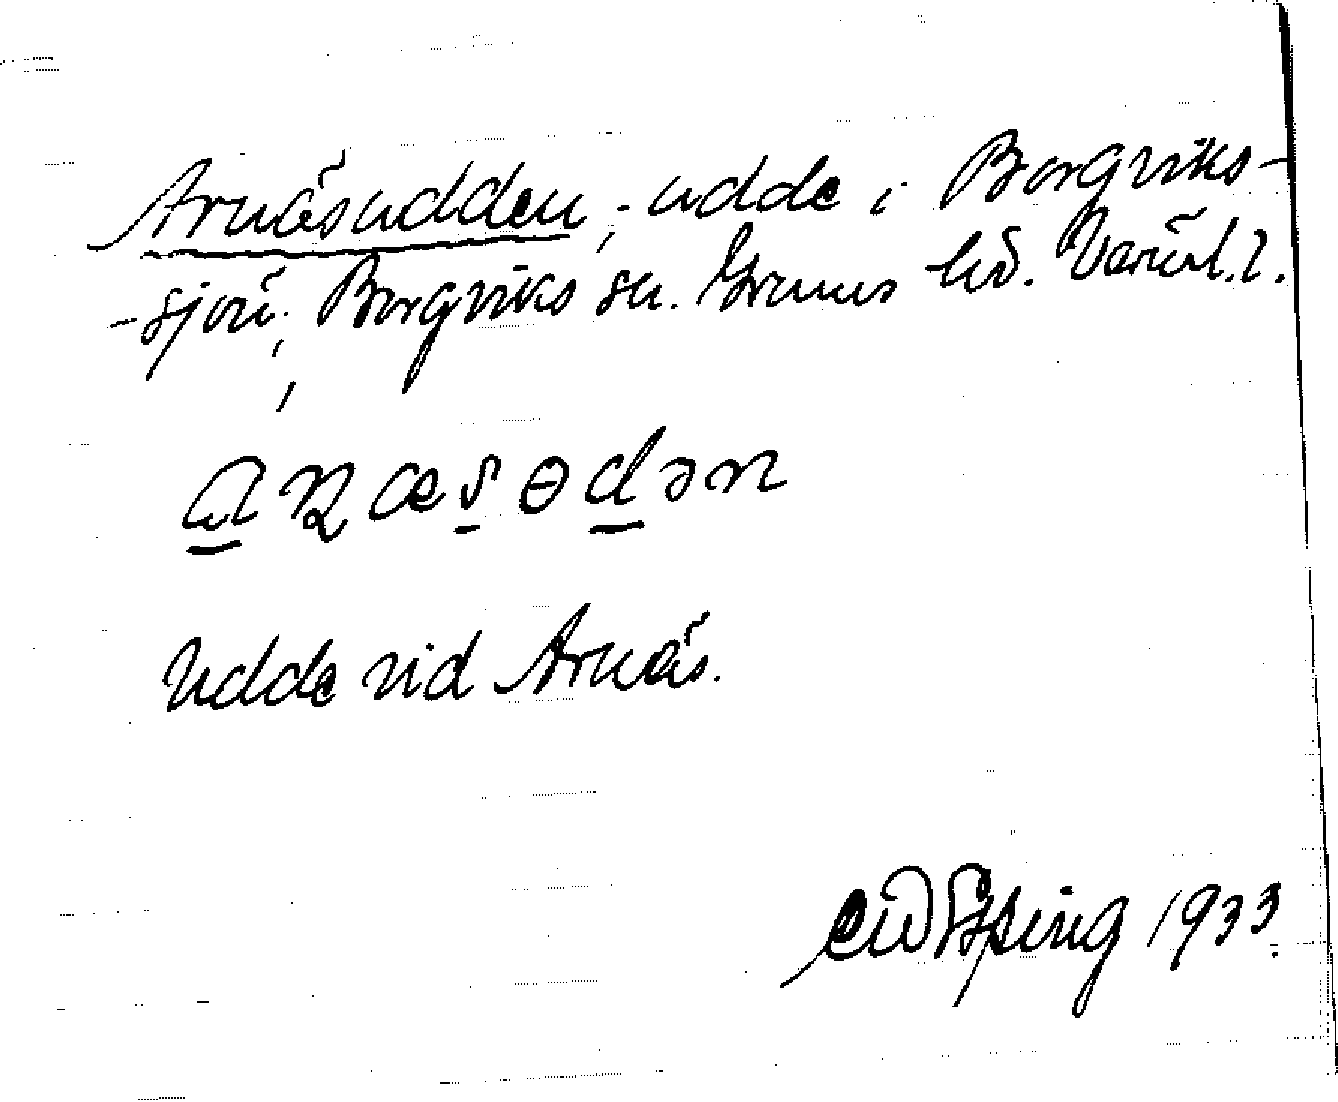 Arnäsudden, udde i Borgviks-
-sjön, Borgviks sn. Grums hd. Värml. l.
aɳæsɵdən
Udde vid Arnäs.
1933.